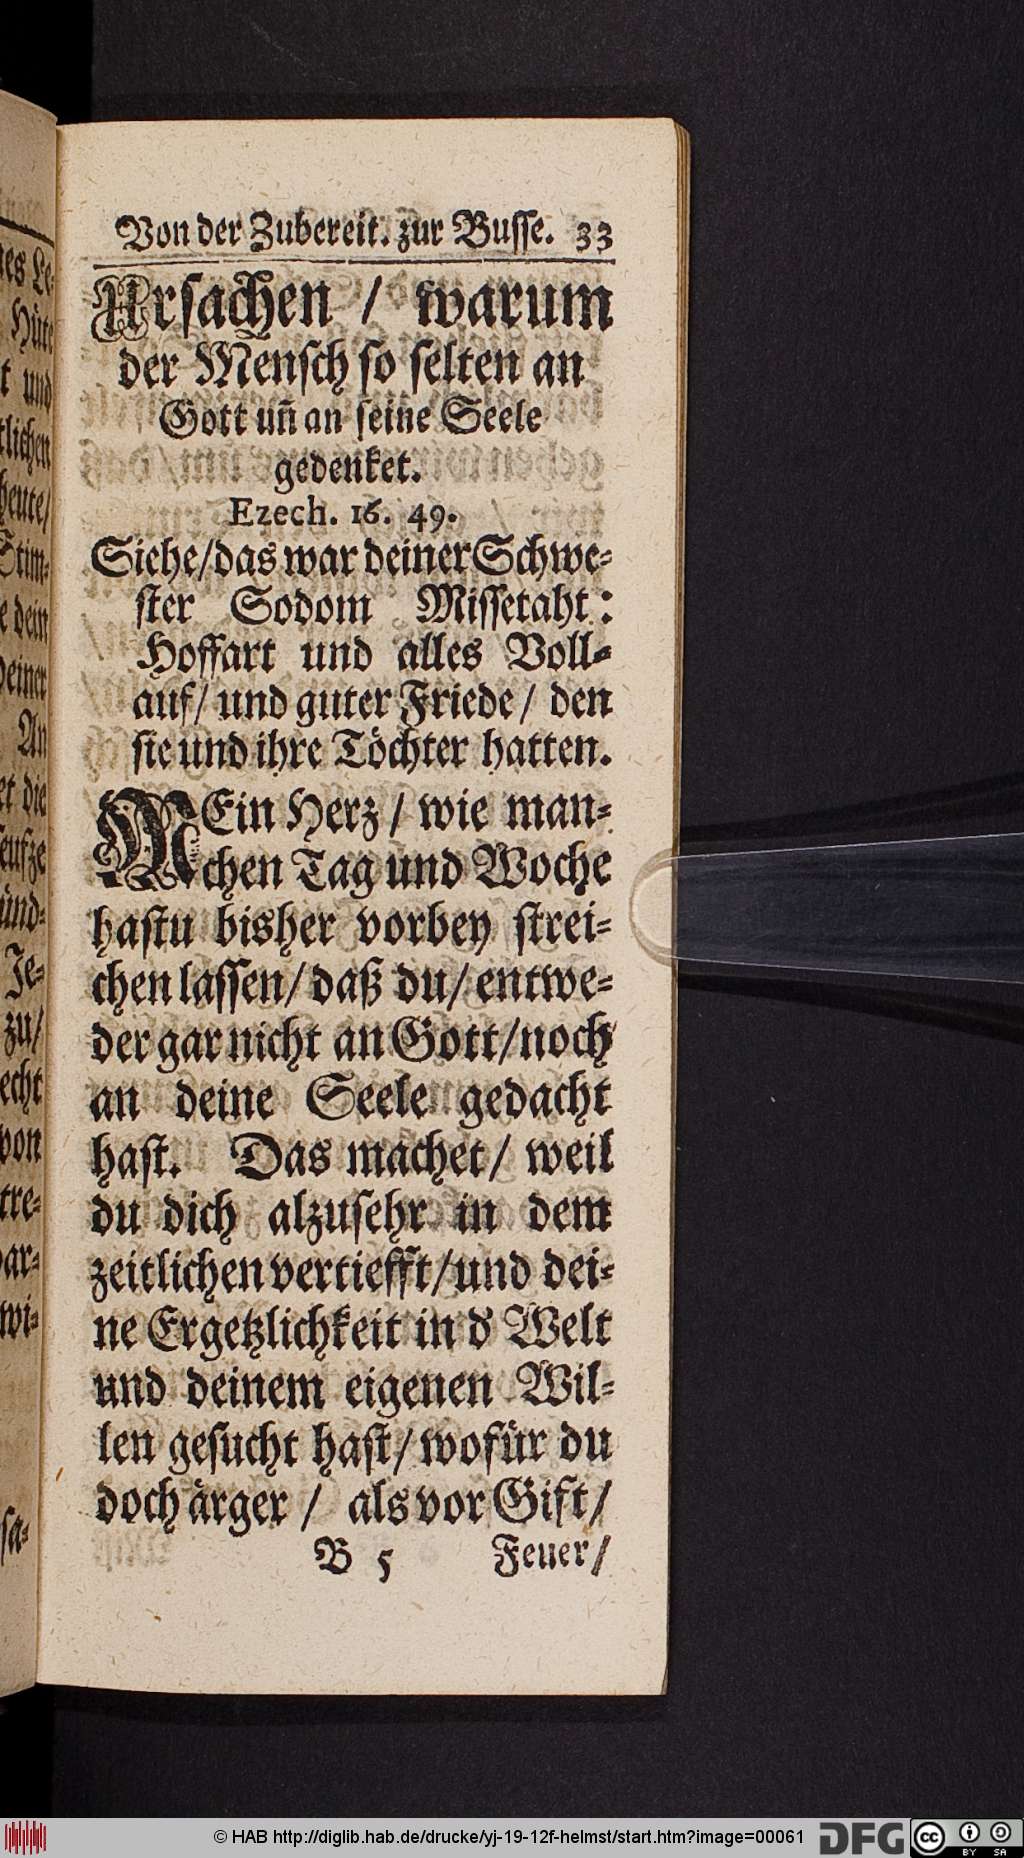 Von der Zubereit. zur Busse. 33
Ursachen / warum
der Mensch so selten an
Gott uñ an seine Seele
gedenket.
Ezech. 16. 49.
Siehe/das war deiner Schwe-
ster Sodom Missetaht:
Hoffart und alles Voll-
auf/ und guter Friede/ den
sie und ihre Töchter hatten.
MEin Herz / wie man-
chen Tag und Woche
hastu bisher vorbey strei-
chen lassen/ daß du/ entwe-
der gar nicht an Gott/noch
an deine Seele gedacht
hast. Das machet/ weil
du dich alzusehr in dem
zeitlichen vertiefft/und dei-
ne Ergetzlichkeit in d' Welt
und deinem eigenen Wil-
len gesucht hast/ wofür du
doch ärger / als vor Gift/
B 5 Feuer/
Hüte
und
tlichen
heute/
Stim-
dein
deiner
An
die
seufze
ünd-
Je-
zu/
echt
von
tre-
dar-
wi-
sa-
© HAB http://diglib.hab.de/drucke/yj-19-12f-helmst/start.htm?image=00061
DFG
cc
BY SA